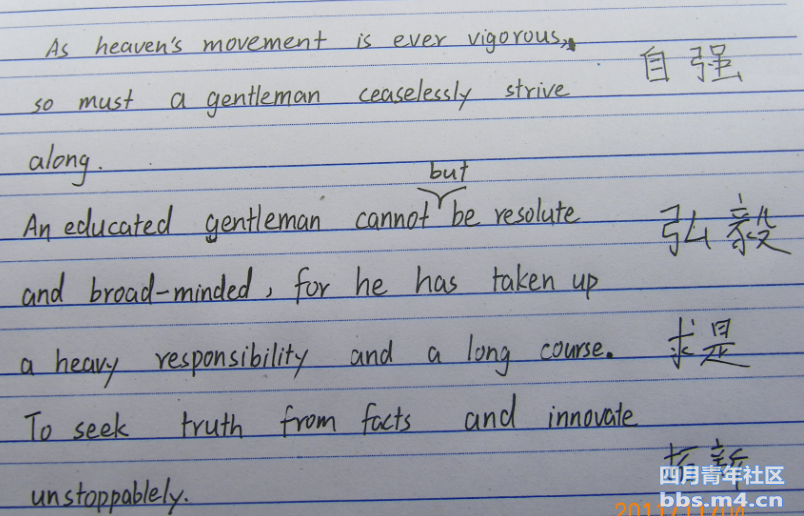 As heaven's movement is ever vigorous, 自强
so must a gentleman ceaselessly strive
along.
but
An educated gentleman cannot be resolute 弘毅
and broad-minded, for he has taken up
a heavy responsibility and a long course. 求是
To seek truth from facts and innovate
拓新
unstoppablely.
四月青年社区
bbs.m4.cn